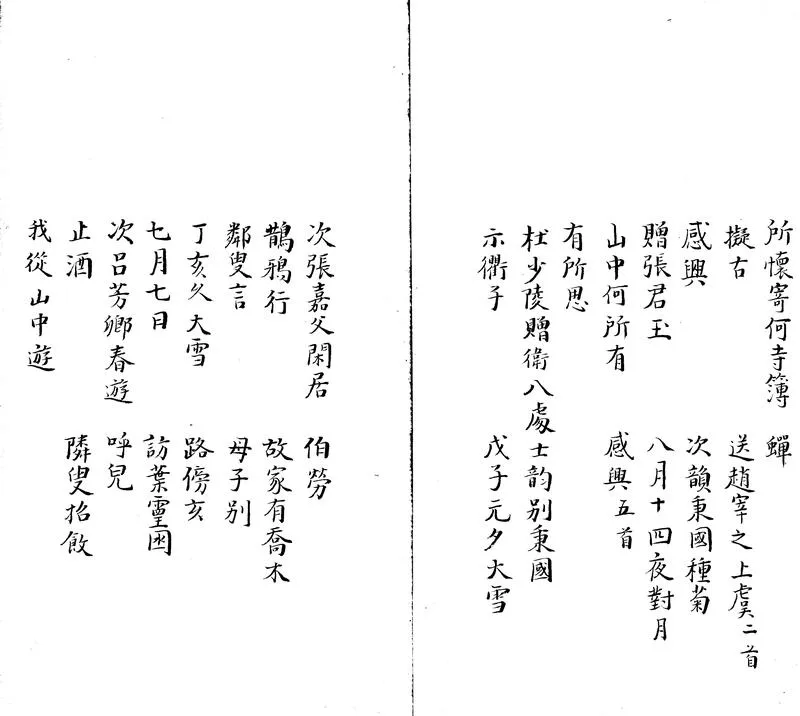 所懷寄何寺簿 蟬
擬古 送趙宰之上虞二首
感興 次韻秉國種菊
贈張君玉 八月十四夜對月
山中何所有 感興五首
有所思
杜少陵贈衛八處士韵别秉國
示衢子 戊子元夕大雪
次張嘉父閑居 伯勞
鵲鴉行 故家有喬木
鄰叟言 母子别
丁亥久大雪 路傍亥
七月七日 訪葉靈困
次呂芳鄉春遊 呼兒
止酒 隣叟招飲
我從山中遊